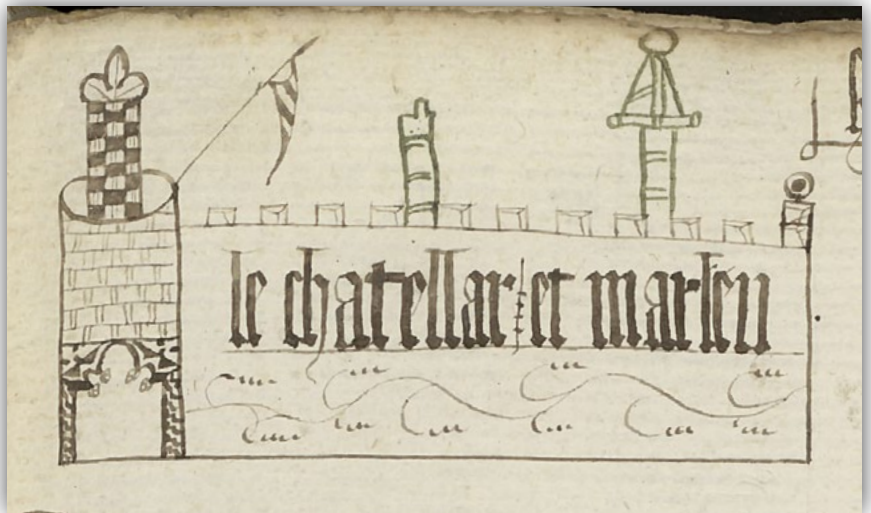 le chatellar et marleu